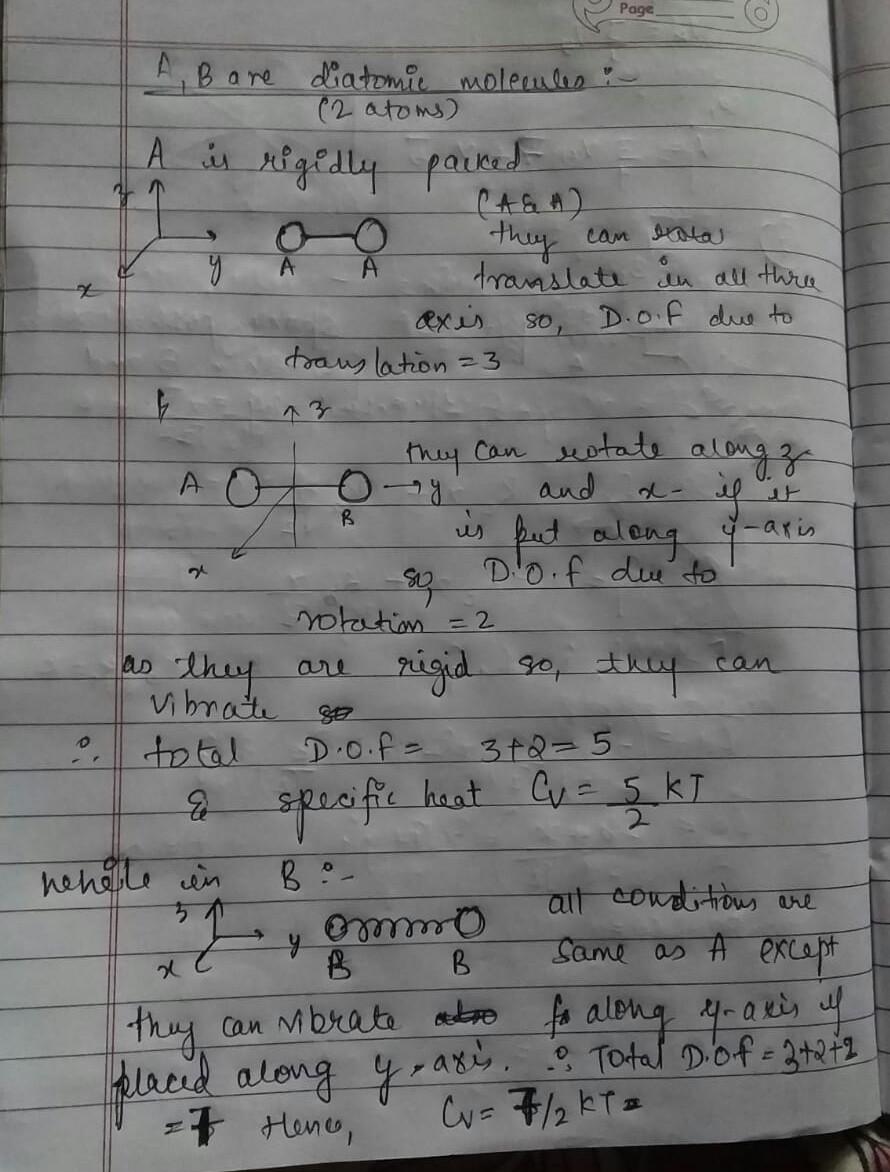 Page
A, B are diatomic molecules :-
(2 atoms)
A is rigidly packed
(A & A)
z
they can rota
y A A
translate in all three
x
axis so, D.O.F due to
translation = 3
z
they can rotate along z
A → y and x- if it
B
is put along y-axis
x
so, D.O.f due to
rotation = 2
as they are rigid so, they can
vibrate so
∴ total D.O.F = 3+2 = 5
& specific heat Cv = 5/2 KT
in B :-
z
all conditions are
y
x B B
same as A except
they can vibrate also along y-axis if
placed along y-axis. ∴ Total D.O.F = 3+2+2
= 7 Hence, Cv = 7/2 KT